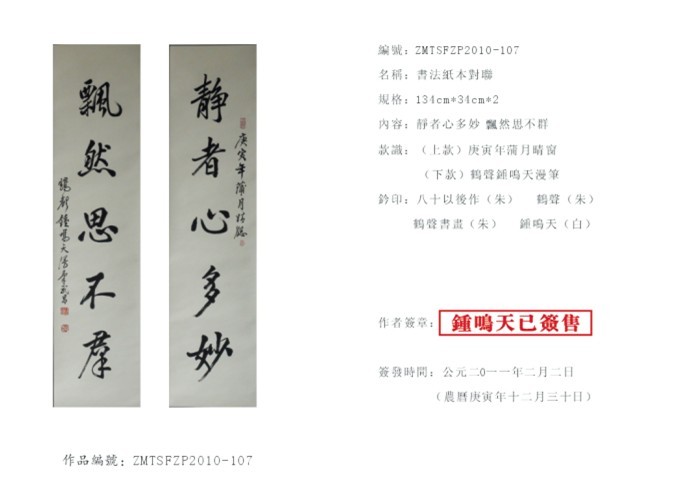 靜者心多妙
庚寅年蒲月晴窗
飄然思不群
鶴聲鍾鳴天漫筆
編號：ZMTSFZP2010-107
名稱：書法紙本對聯
規格：134cm*34cm*2
內容：靜者心多妙 飄然思不群
款識：（上款）庚寅年蒲月晴窗
（下款）鶴聲鍾鳴天漫筆
鈐印：八十以後作（朱） 鶴聲（朱）
鶴聲書畫（朱） 鍾鳴天（白）
作者簽章：鍾鳴天已簽售
簽發時間：公元二0一一年二月二日
（農曆庚寅年十二月三十日）
作品編號：ZMTSFZP2010-107